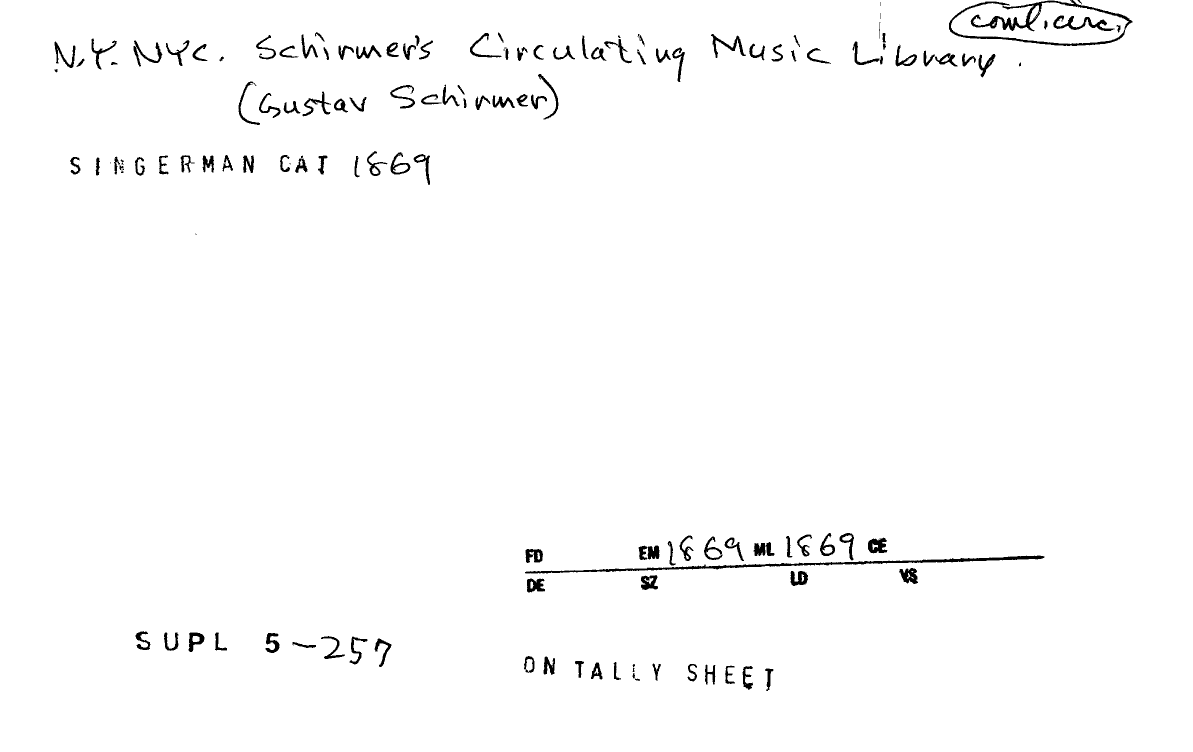 coml. circ.
N.Y. NYC. Schirmer's Circulating Music Library.
(Gustav Schirmer)
SINGERMAN CAT 1869
FD EM 1869 ML 1869 CE
DE SZ LD VS
SUPL 5-257
ON TALLY SHEET